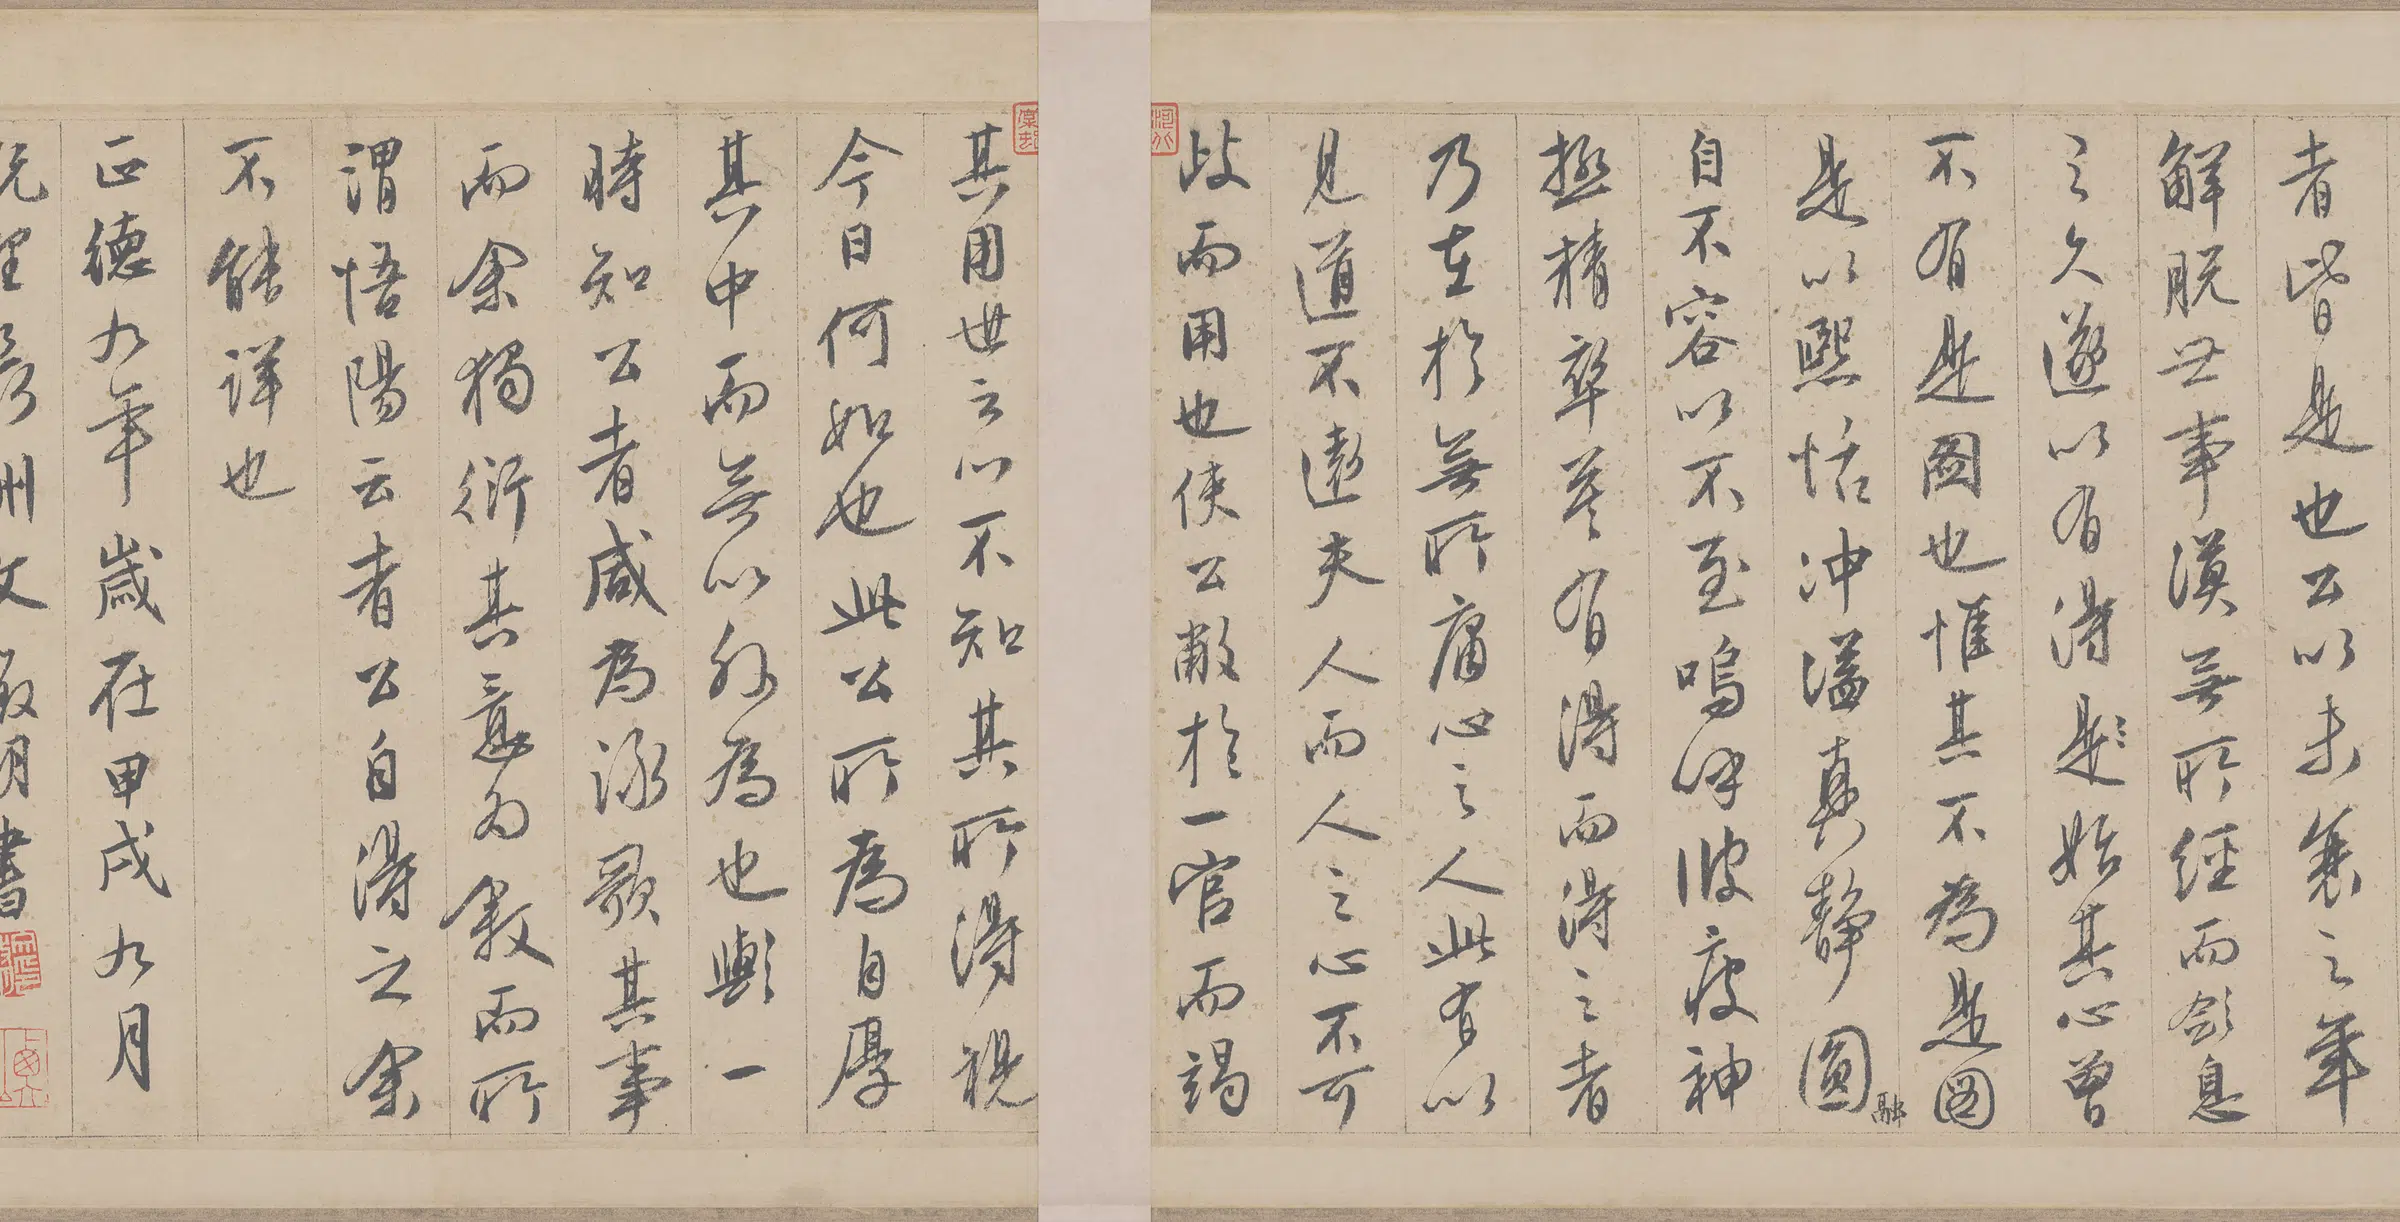 者皆是也公以未衰之年
解脱世事漠無所經而斂息
之久遂以有得是始其心曾
不有是圖也惟其不為是圖
是以熙恬沖溢真靜圓融
自不容以不至嗚呼彼疲神
極精卒莫有得而得之者
乃在於無所庸心之人此有以
見道不遠夫人而人之心不可
歧而用也使公敝於一官而竭
其用世之心不知其所得視
今日何如也此公所為自厚
其中而無以外為也輿一
時知公者咸為詠歌其事
而余獨衍其意為敘而所
謂悟陽云者公自得之余
不能詳也
正德九年歲在甲戌九月
文徵明書